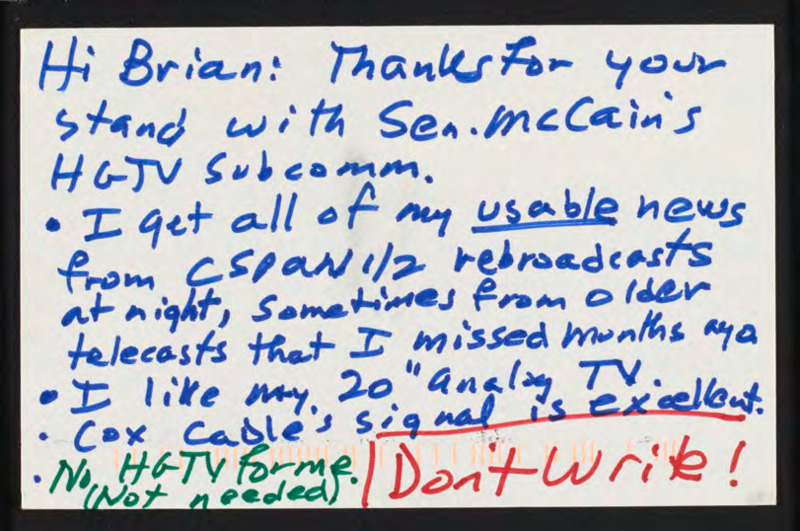 Hi Brian: Thanks for your
stand with Sen. McCain's
HGTV Subcomm.
• I get all of my usable news
from CSPAN 1/2 rebroadcasts
at night, sometimes from older
telecasts that I missed months ago
• I like my 20" analog TV.
• Cox Cable's signal is excellent.
• No HGTV for me.
(Not needed)
Don't Write!